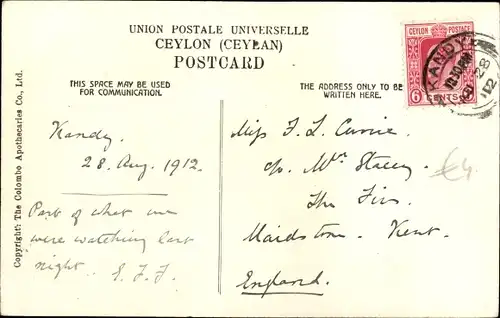 UNION POSTALE UNIVERSELLE
CEYLON (CEYLAN)
POSTCARD
THIS SPACE MAY BE USED
FOR COMMUNICATION.
THE ADDRESS ONLY TO BE
WRITTEN HERE.
CEYLON POSTAGE
6 CENTS
KANDY
28
12
Copyright: The Colombo Apothecaries Co., Ltd.
Kandy.
28. Aug. 1912.
Part of what we
were watching last
night.
Miss F. L. Currie.
c/o Mrs Stacey.
The Firs.
Maidstone. Kent.
England.
€4.